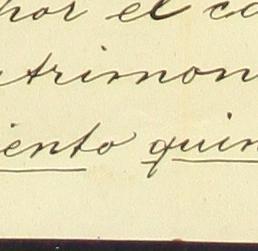 por el co
atrimon
iento quin